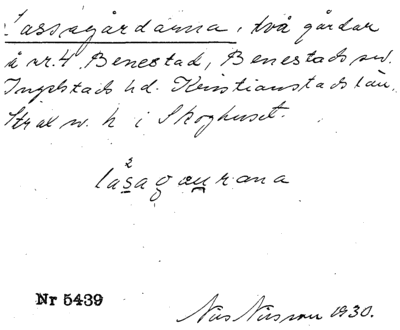 Lassagårdarna, två gårdar
å nr. 4 Benestad, Benestads sn.
Ingelstads hd. Kristianstads län.
Strax n. k i Skoghuset.
låsagaurana
Nr 5439
Nils Nilsson 1930.